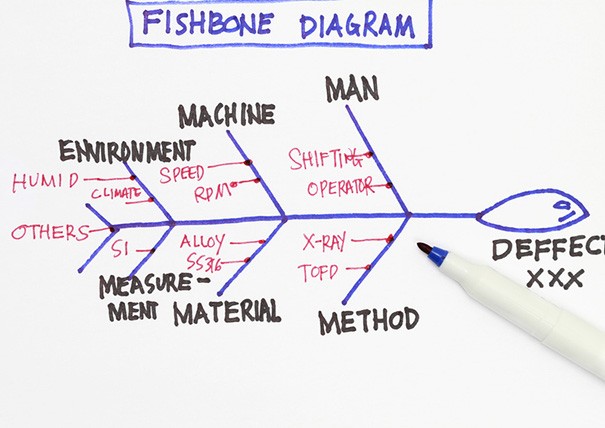 FISHBONE DIAGRAM
MAN
MACHINE
ENVIRONMENT
SHIFTING
SPEED
HUMID
CLIMATE
RPM
OPERATOR
OTHERS
SI
ALLOY
X-RAY
DEFFECT
SS316
TOFD
XXX
MEASURE-
MENT
MATERIAL
METHOD